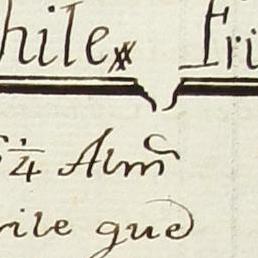 hile Fri
¼ Alm̃
ile que